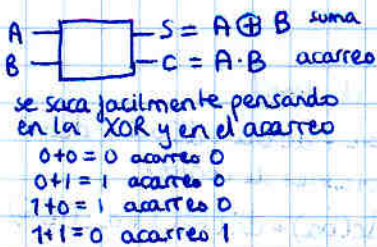 A S = A ⊕ B suma
B C = A·B acarreo
se saca facilmente pensando
en la XOR y en el acarreo
0+0=0 acarreo 0
0+1=1 acarreo 0
1+0=1 acarreo 0
1+1=0 acarreo 1